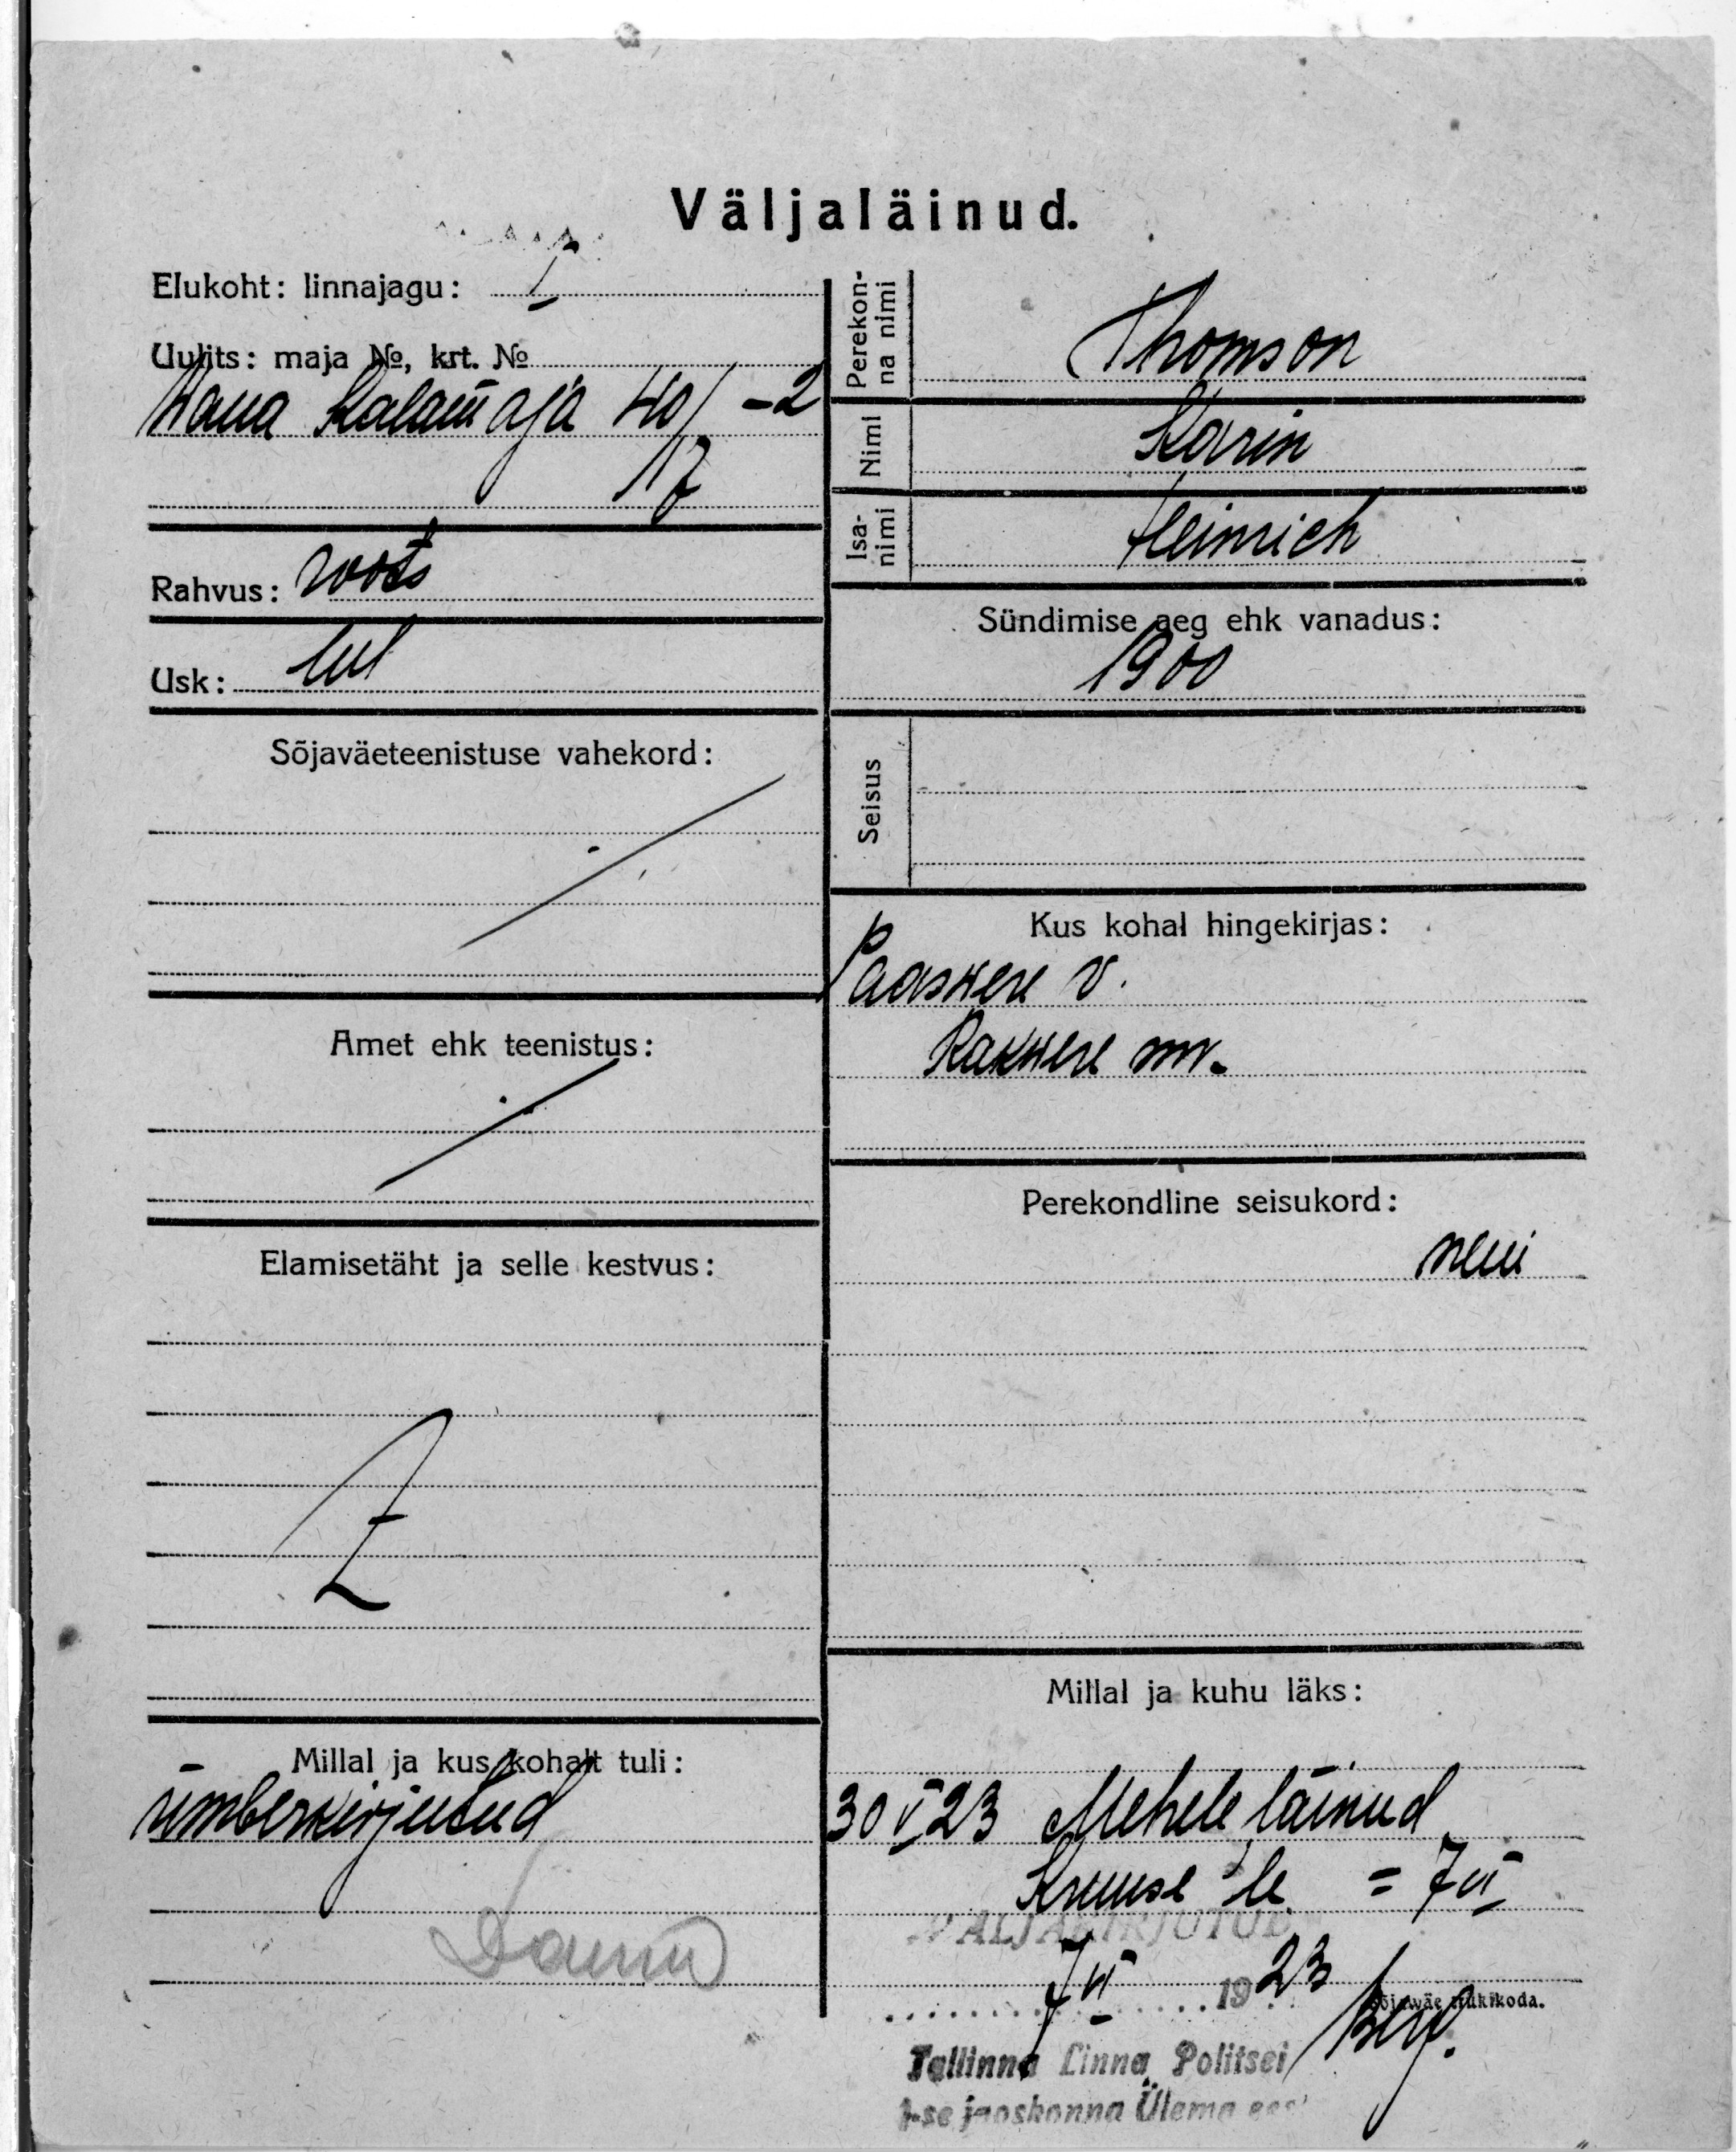 Väljaläinud.
Elukoht: linnajagu: I
Uulits: maja №, krt. №
Wana Kalamaja 40/17 -2
Rahvus: roots
Usk: lut
Sõjaväeteenistuse vahekord:
Amet ehk teenistus:
Elamisetäht ja selle kestvus:
Millal ja kus kohalt tuli:
ümberkirjutud
Perekonna nimi Thomson
Nimi Karin
Isanimi Heinrich
Sündimise aeg ehk vanadus:
1900
Seisus
Kus kohal hingekirjas:
Paaswere v.
Rakwere mk.
Perekondline seisukord:
neiu
Millal ja kuhu läks:
30 V 23 Mehele läinud
Kruuse'le = 7 VI
VÄLJAKIRJUTUD
7 VI 1923
Sõjawäe trükikoda.
Tallinna Linna Politsei
1-se jaoskonna Ülema eest